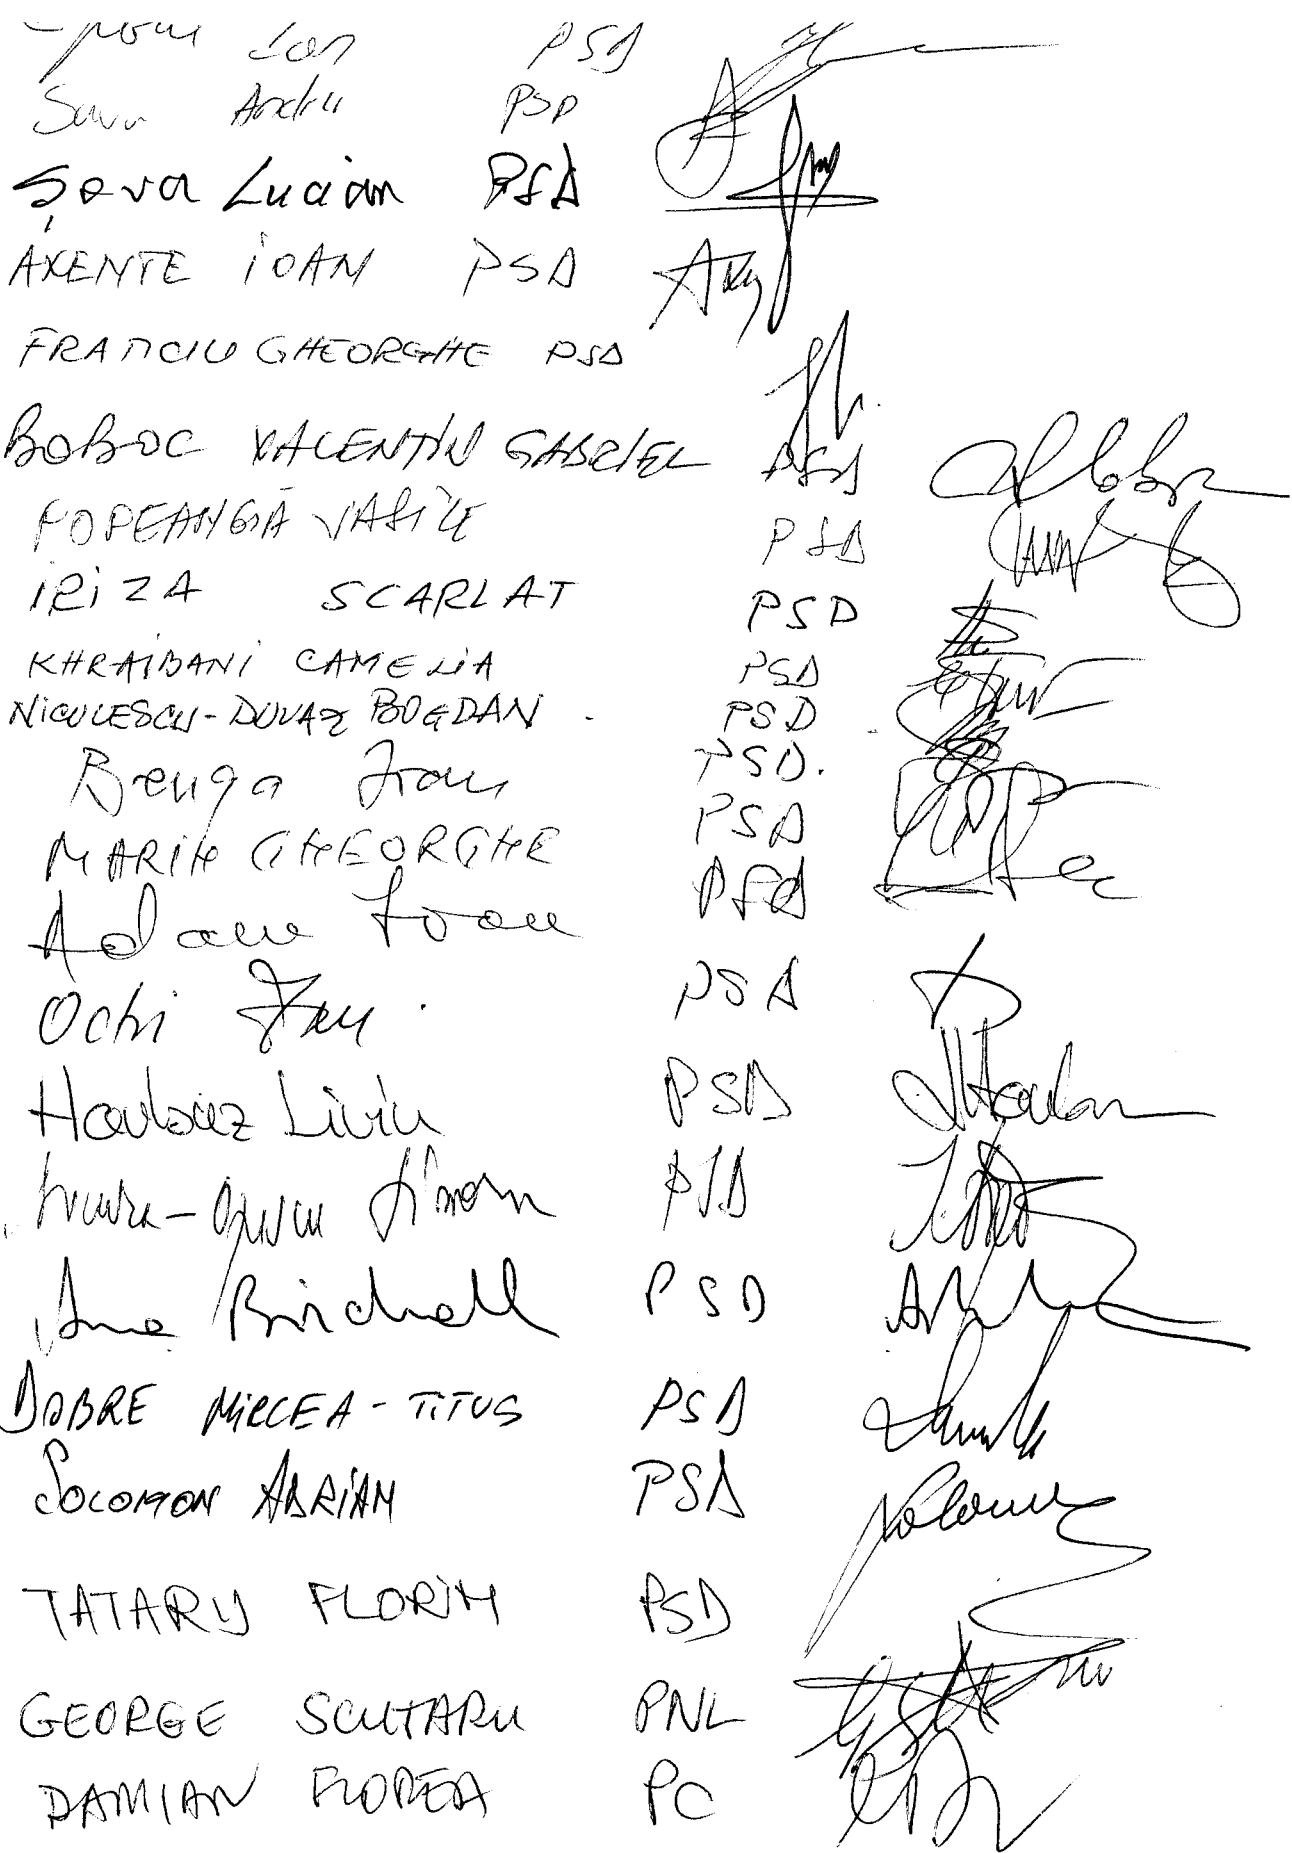 Ion PSD
Sava Andrei PSD
Șova Lucian PSD
AXENTE IOAN PSD
FRANCIU GHEORGHE PSD
BOBOC VALENTIN GABRIEL PSD
POPEANGĂ VASILE PSD
IRIZA SCARLAT PSD
KHRAIBANI CAMELIA PSD
NICULESCU-DUVAZ BOGDAN PSD
Benga Ioan PSD.
MARIN GHEORGHE PSD
Adam Ioan PSD
Ochi Ion PSD
Harbuz Liviu PSD
PSD
Ana Birchall PSD
DOBRE MIRCEA-TITUS PSD
SOLOMON ADRIAN PSD
TATARU FLORIN PSD
GEORGE SCUTARU PNL
DAMIAN FLOREA PC